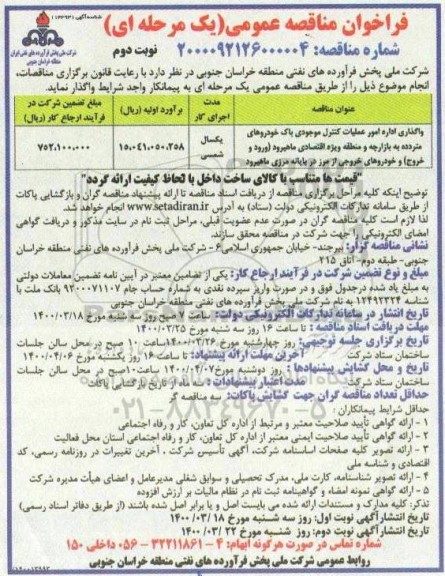 شناسه آگهی (۱۱۴۳۹۳)
فراخوان مناقصه عمومی(یک مرحله ای)
شماره مناقصه: ۲۰۰۰۰۹۲۱۲۶۰۰۰۰۰۴ نوبت دوم
شرکت ملی پخش فرآورده های نفتی ایران
منطقه خراسان جنوبی
شرکت ملی پخش فرآورده های نفتی منطقه خراسان جنوبی در نظر دارد با رعایت قانون برگزاری مناقصات،
انجام موضوع ذیل را از طریق مناقصه عمومی یک مرحله ای به پیمانکار واجد شرایط واگذار نماید.
عنوان مناقصه
مدت اجرای کار
برآورد اولیه (ریال)
مبلغ تضمین شرکت در فرآیند ارجاع کار (ریال)
واگذاری اداره امور عملیات کنترل موجودی باک خودروهای
متردده به بازارچه و منطقه ویژه اقتصادی ماهیرود (ورود و
خروج) و خودروهای خروجی از مرز در پایانه مرزی ماهیرود
یکسال شمسی
۱۵،۰۴۱،۰۵۰،۲۵۸
۷۵۲،۱۰۰،۰۰۰
"قیمت ها متناسب با کالای ساخت داخل با لحاظ کیفیت ارائه گردد"
توضیح اینکه کلیه مراحل برگزاری مناقصه از دریافت اسناد مناقصه تا ارائه پیشنهاد مناقصه گران و بازگشایی پاکات
از طریق سامانه تدارکات الکترونیکی دولت (ستاد) به آدرس www.setadiran.ir انجام خواهد شد.
لذا لازم است کلیه مناقصه گران در صورت عدم عضویت قبلی، مراحل ثبت نام در سایت مذکور و دریافت گواهی
امضای الکترونیکی را جهت شرکت در مناقصه محقق سازند.
نشانی مناقصه گزار: بیرجند- خیابان جمهوری اسلامی۶ - شرکت ملی پخش فرآورده های نفتی منطقه خراسان
جنوبی- طبقه دوم- اتاق ۲۱۵
مبلغ و نوع تضمین شرکت در فرآیند ارجاع کار: یکی از تضامین معتبر در آیین نامه تضمین معاملات دولتی
به مبلغ یاد شده درجدول فوق و در صورت واریز سپرده نقدی به شماره حساب جام ۹۲۰۰۰۷۱۱۰۷ بانک ملت با
شناسه ۱۲۴۹۲۳۲۴ به نام شرکت ملی پخش فرآورده های نفتی منطقه خراسان جنوبی
تاریخ انتشار در سامانه تدارکات الکترونیکی دولت: ساعت ۸ صبح روز سه شنبه مورخ ۱۴۰۰/۰۳/۱۸
مهلت دریافت اسناد مناقصه : تا ساعت ۱۶ روز سه شنبه مورخ ۱۴۰۰/۰۳/۲۵
تاریخ برگزاری جلسه توجیهی: روز چهارشنبه مورخ۱۴۰۰/۰۳/۲۶ساعت ۱۰ صبح در محل سالن جلسات
ساختمان ستاد شرکت آخرین مهلت ارائه پیشنهاد: تا ساعت ۱۶ روز یکشنبه مورخ ۱۴۰۰/۰۴/۰۶
تاریخ و محل گشایش پیشنهادها : روز دوشنبه مورخ ۱۴۰۰/۰۴/۰۷ساعت ۱۰صبح در محل سالن جلسات
ساختمان ستاد شرکت مدت اعتبار پیشنهادات: از تاریخ بازگشایی پاکات
حداقل تعداد مناقصه گران جهت گشایش پاکات: سه مناقصه گر
حداقل شرایط پیمانکاران :
۱ - ارائه گواهی تأیید صلاحیت معتبر و مرتبط از اداره کل تعاون، کار و رفاه اجتماعی
۲ - ارائه گواهی تأیید صلاحیت ایمنی معتبر از اداره کل تعاون، کار و رفاه اجتماعی استان محل فعالیت
۳ - ارائه تصویر کلیه صفحات اساسنامه شرکت، آگهی تأسیس شرکت ، آخرین تغییرات در روزنامه رسمی، کد
اقتصادی و شناسه ملی
۴ - ارائه تصویر شناسنامه، کارت ملی، مدرک تحصیلی و سوابق شغلی مدیرعامل و اعضای هیأت مدیره شرکت
۵ - ارائه گواهی نمونه امضاء و گواهینامه ثبت نام در نظام مالیات بر ارزش افزوده
تذکر: کلیه مدارک و مستندات ارائه شده می بایست اصل و یا برابر اصل شده باشند (از طریق دفاتر اسناد رسمی)
تاریخ انتشار آگهی نوبت اول: روز سه شنبه مورخ ۱۴۰۰/۰۳/۱۸
تاریخ انتشار آگهی نوبت دوم: روز شنبه مورخ ۱۴۰۰/۰۳/۲۲
شماره تماس در صورت هرگونه ابهام: ۴ - ۳۲۲۱۱۸۶۱ - ۰۵۶ داخلی ۱۵۰
روابط عمومی شرکت ملی پخش فرآورده های نفتی منطقه خراسان جنوبی
۰۲۱-۸۸۳۴۹۶۷۰-۵